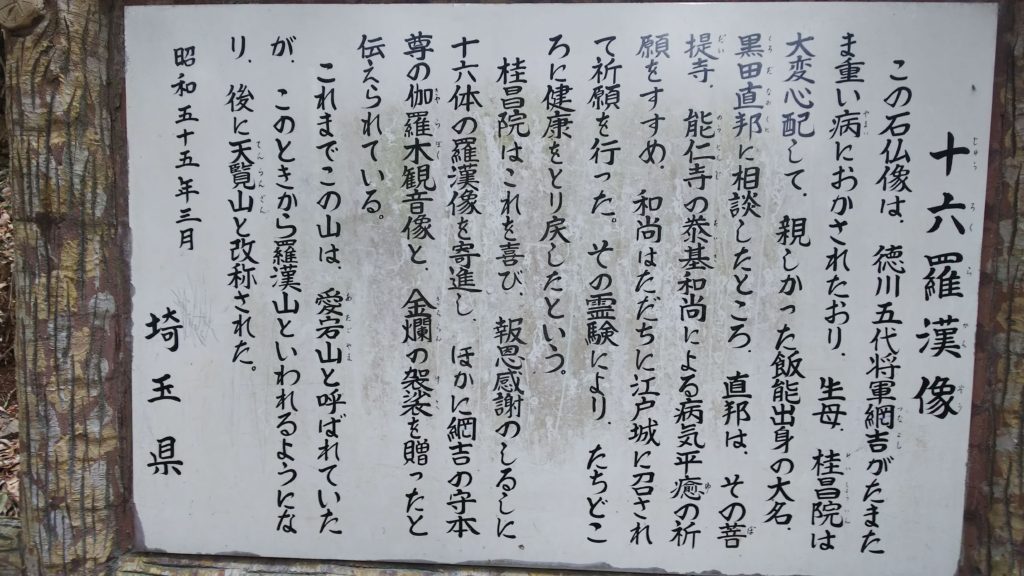 十六羅漢像
この石仏像は、徳川五代将軍綱吉がたまた
ま重い病におかされたおり、生母、桂昌院は
大変心配して、親しかった飯能出身の大名、
黒田直邦に相談したところ、直邦は、その菩
提寺、能仁寺の泰基和尚による病気平癒の祈
願をすすめ、和尚はただちに江戸城に召され
て祈願を行った。その霊験により、たちどこ
ろに健康をとり戻したという。
桂昌院はこれを喜び、報恩感謝のしるしに、
十六体の羅漢像を寄進し、ほかに綱吉の守本
尊の伽羅木観音像と、金爛の袈裟を贈ったと
伝えられている。
これまでこの山は、愛宕山と呼ばれていた
が、このときから羅漢山といわれるようにな
り、後に天覧山と改称された。
昭和五十五年三月
埼玉県